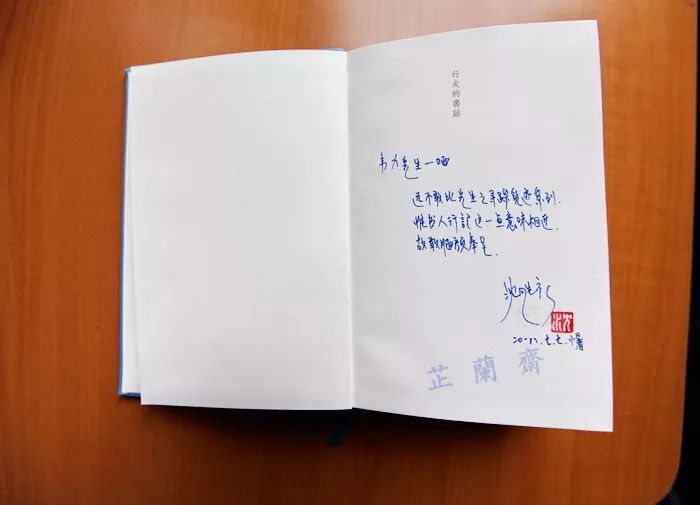 行走的書話
韦力先生一哂
远不敢比先生之寻踪觅迹系列.
惟书人行记这一点意味相近.
故敢腼颜奉呈.
二〇一八.七.七.小暑
芷蘭齋